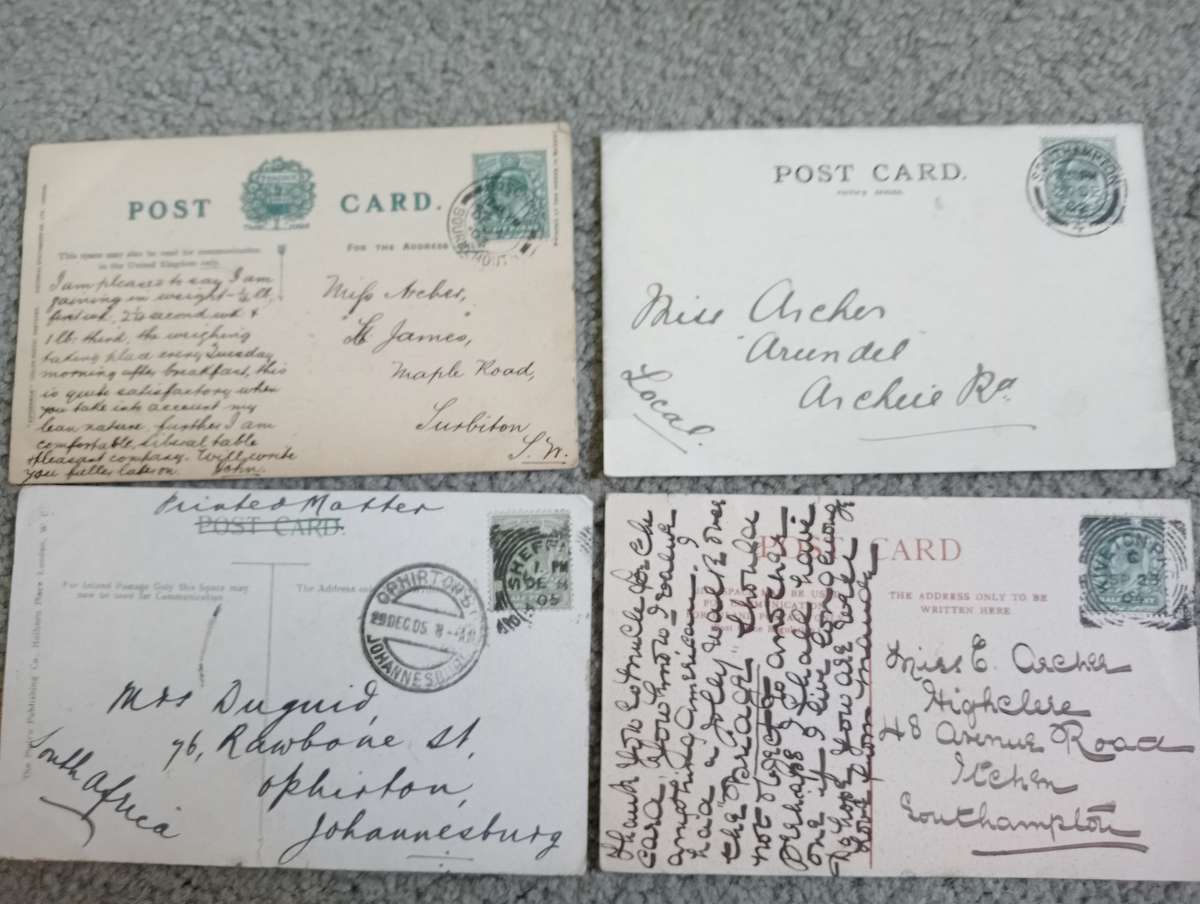 POST CARD.
This space may also be used for communication
in the United Kingdom only.
FOR THE ADDRESS
I am pleased to say I am
gaining in weight - ½ lb.
first wk. 2¼ second wk &
1 lb. third, the weighing
taking place every Tuesday
morning after breakfast, this
is quite satisfactory when
you take into account my
lean nature, further I am
comfortable, liberal table
& pleasant company. Will write
you fuller later on. John.
Miss Archer,
St James,
Maple Road,
Surbiton
S.W.
POST CARD.
SOUTHAMPTON
Miss Archer
Arundel
Archers Rd
Local.
Printed Matter
POST CARD.
For Inland Postage Only this Space may
now be used for Communication
The Address
SHEFF
1. PM
DE 8
05
OPHIRTON
29 DEC. 05. 8
JOHANNESBURG
Mrs Duguid,
76, Rawbone St,
Ophirton,
Johannesburg
South Africa
POST CARD
THE ADDRESS ONLY TO BE
WRITTEN HERE
KIVETON PK
SP 23
Thank you so much for P.
card. You know I value
anything American. I
had a jolly walk over
the "Bridge" & should
not object to another
Perhaps I shall have
one if I live long enough
Hope you are well
Love from Maude
Miss E. Archer
Highclere
48 Avenue Road
Itchen
Southampton